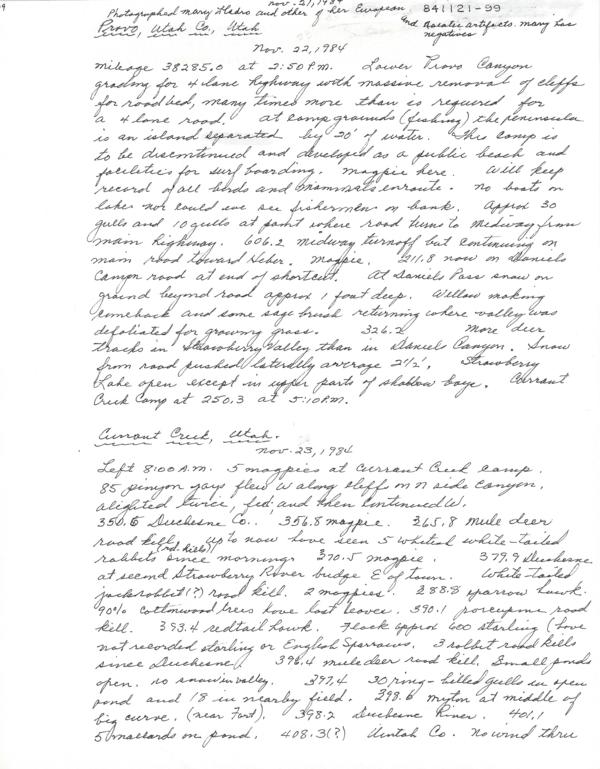 9
Nov. 21, 1984
Photographed many Hadro and other of her European
841121-99
and Asiatic artifacts. Mary has
negatives
Provo, Utah Co., Utah
Nov. 22, 1984
mileage 38285.0 at 2:50 P.M. Lower Provo Canyon
grading for 4 lane highway with massive removal of cliffs
for roadbed, many times more than is required for
a 4 lane road. at camp grounds (fishing) the peninsula
is an island separated by 20' of water. This camp is
to be discontinued and developed as a public beach and
facilities for surf boarding. magpie here. Will keep
record of all birds and mammals enroute. no boats on
lake nor could we see fishermen on bank. Approx 30
gulls and 10 gulls at point where road turns to Midway from
main highway. 606.2 midway turnoff but continuing on
main road toward Heber. Magpie. 211.8 now on Daniels
Canyon road at end of shortcut. At Daniels Pass snow on
ground beyond road approx 1 foot deep. Willow making
comeback and some sage brush returning where valley was
defoliated for growing grass. 326.2 More deer
tracks in Strawberry Valley than in Daniels Canyon. Snow
from road pushed laterally average 2½'. Strawberry
Lake open except in upper parts of shallow bays. Currant
Creek Camp at 250.3 at 5:10 P.M.
Currant Creek, Utah.
Nov. 23, 1984
Left 8:00 A.M. 5 magpies at Currant Creek camp.
85 pinyon jays flew W along cliffs on N side Canyon,
alighted twice, fed, and then continued W.
350.5 Duchesne Co. 356.8 magpie. 365.8 mule deer
road kill. up to now have seen 5 white-tailed
(rd. kills)
rabbits since morning. 370.5 magpie. 377.9 Duchesne
at second Strawberry River bridge E of town. White-tailed
jackrabbit(?) road kill. 2 magpies. 288.8 sparrow hawk.
90% cottonwood trees have lost leaves. 390.1 porcupine road
kill. 393.4 redtail hawk. Flock approx 600 starling (have
not recorded starling or English Sparrows. 3 rabbit road kills
since Duchesne. 396.4 mule deer road kill. Small ponds
open. no snow in valley. 397.4 30 ring-billed gulls in open
pond and 18 in nearby field. 398.6 myton at middle of
big curve. (near Fort). 398.2 Duchesne River. 401.1
5 mallards on pond. 408.3(?) Uintah Co. No wind thru